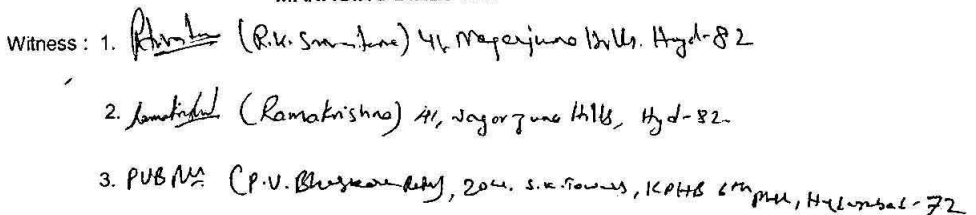 Witness : 1. (R.K. 41, Nagarjuna Hills. Hyd-82
2. (Ramakrishna) 41, Nagarjuna Hills, Hyd-82.
3. (P.V. Bhaskara Reddy, 204. S.K. Towers, KPHB 6th Hyderabad-72